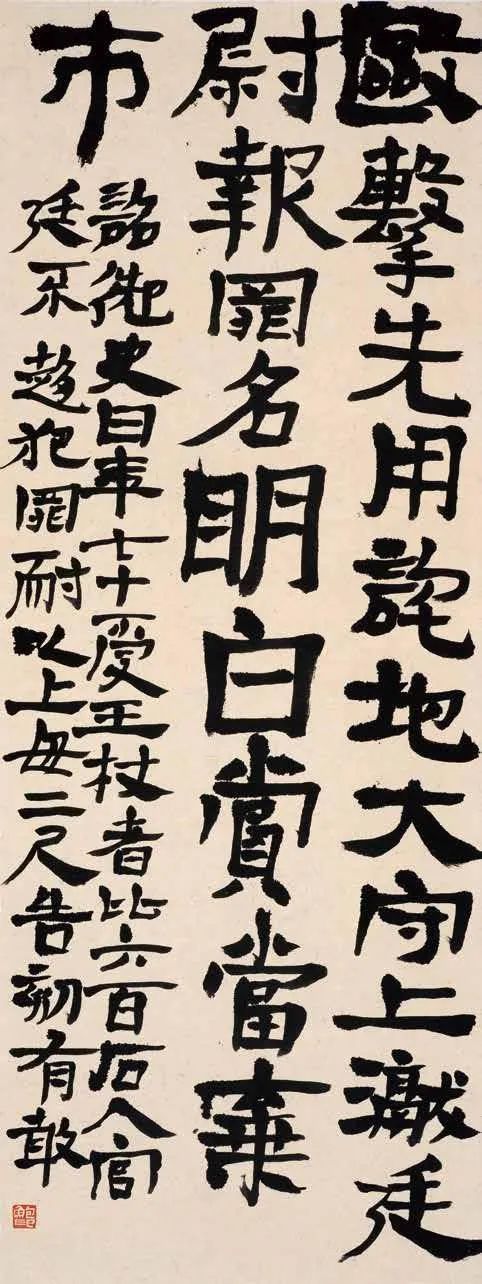 敺擊先用詑地大守上讞廷
尉報罪名眀白賞當棄
市
詔御史曰年七十受王杖者比六百石入官
廷不趨犯罪耐以上毋二尺告劾有敢